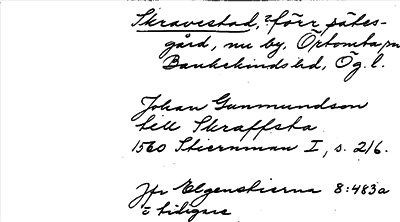 Skravestad, förr sätes-
gård, nu by, Örtomta sn
Bankekinds hd, Ög. l.
Johan Gunmundson
till Skraffsta
1560 Stiernman I, s. 216.
Jfr Elgenstierna 8:483a
tidigare